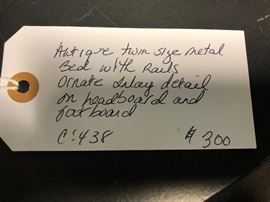 Antique twin size metal
Bed with Rails
Ornate Inlay detail
on headboard and
footboard
C:438 $300